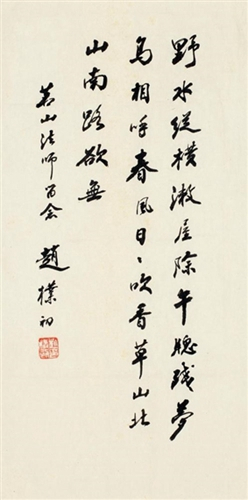 野水縱橫漱屋除午牕殘夢
鳥相呼春風日〻吹香草山北
山南路欲無
茗山法師留念 趙樸初